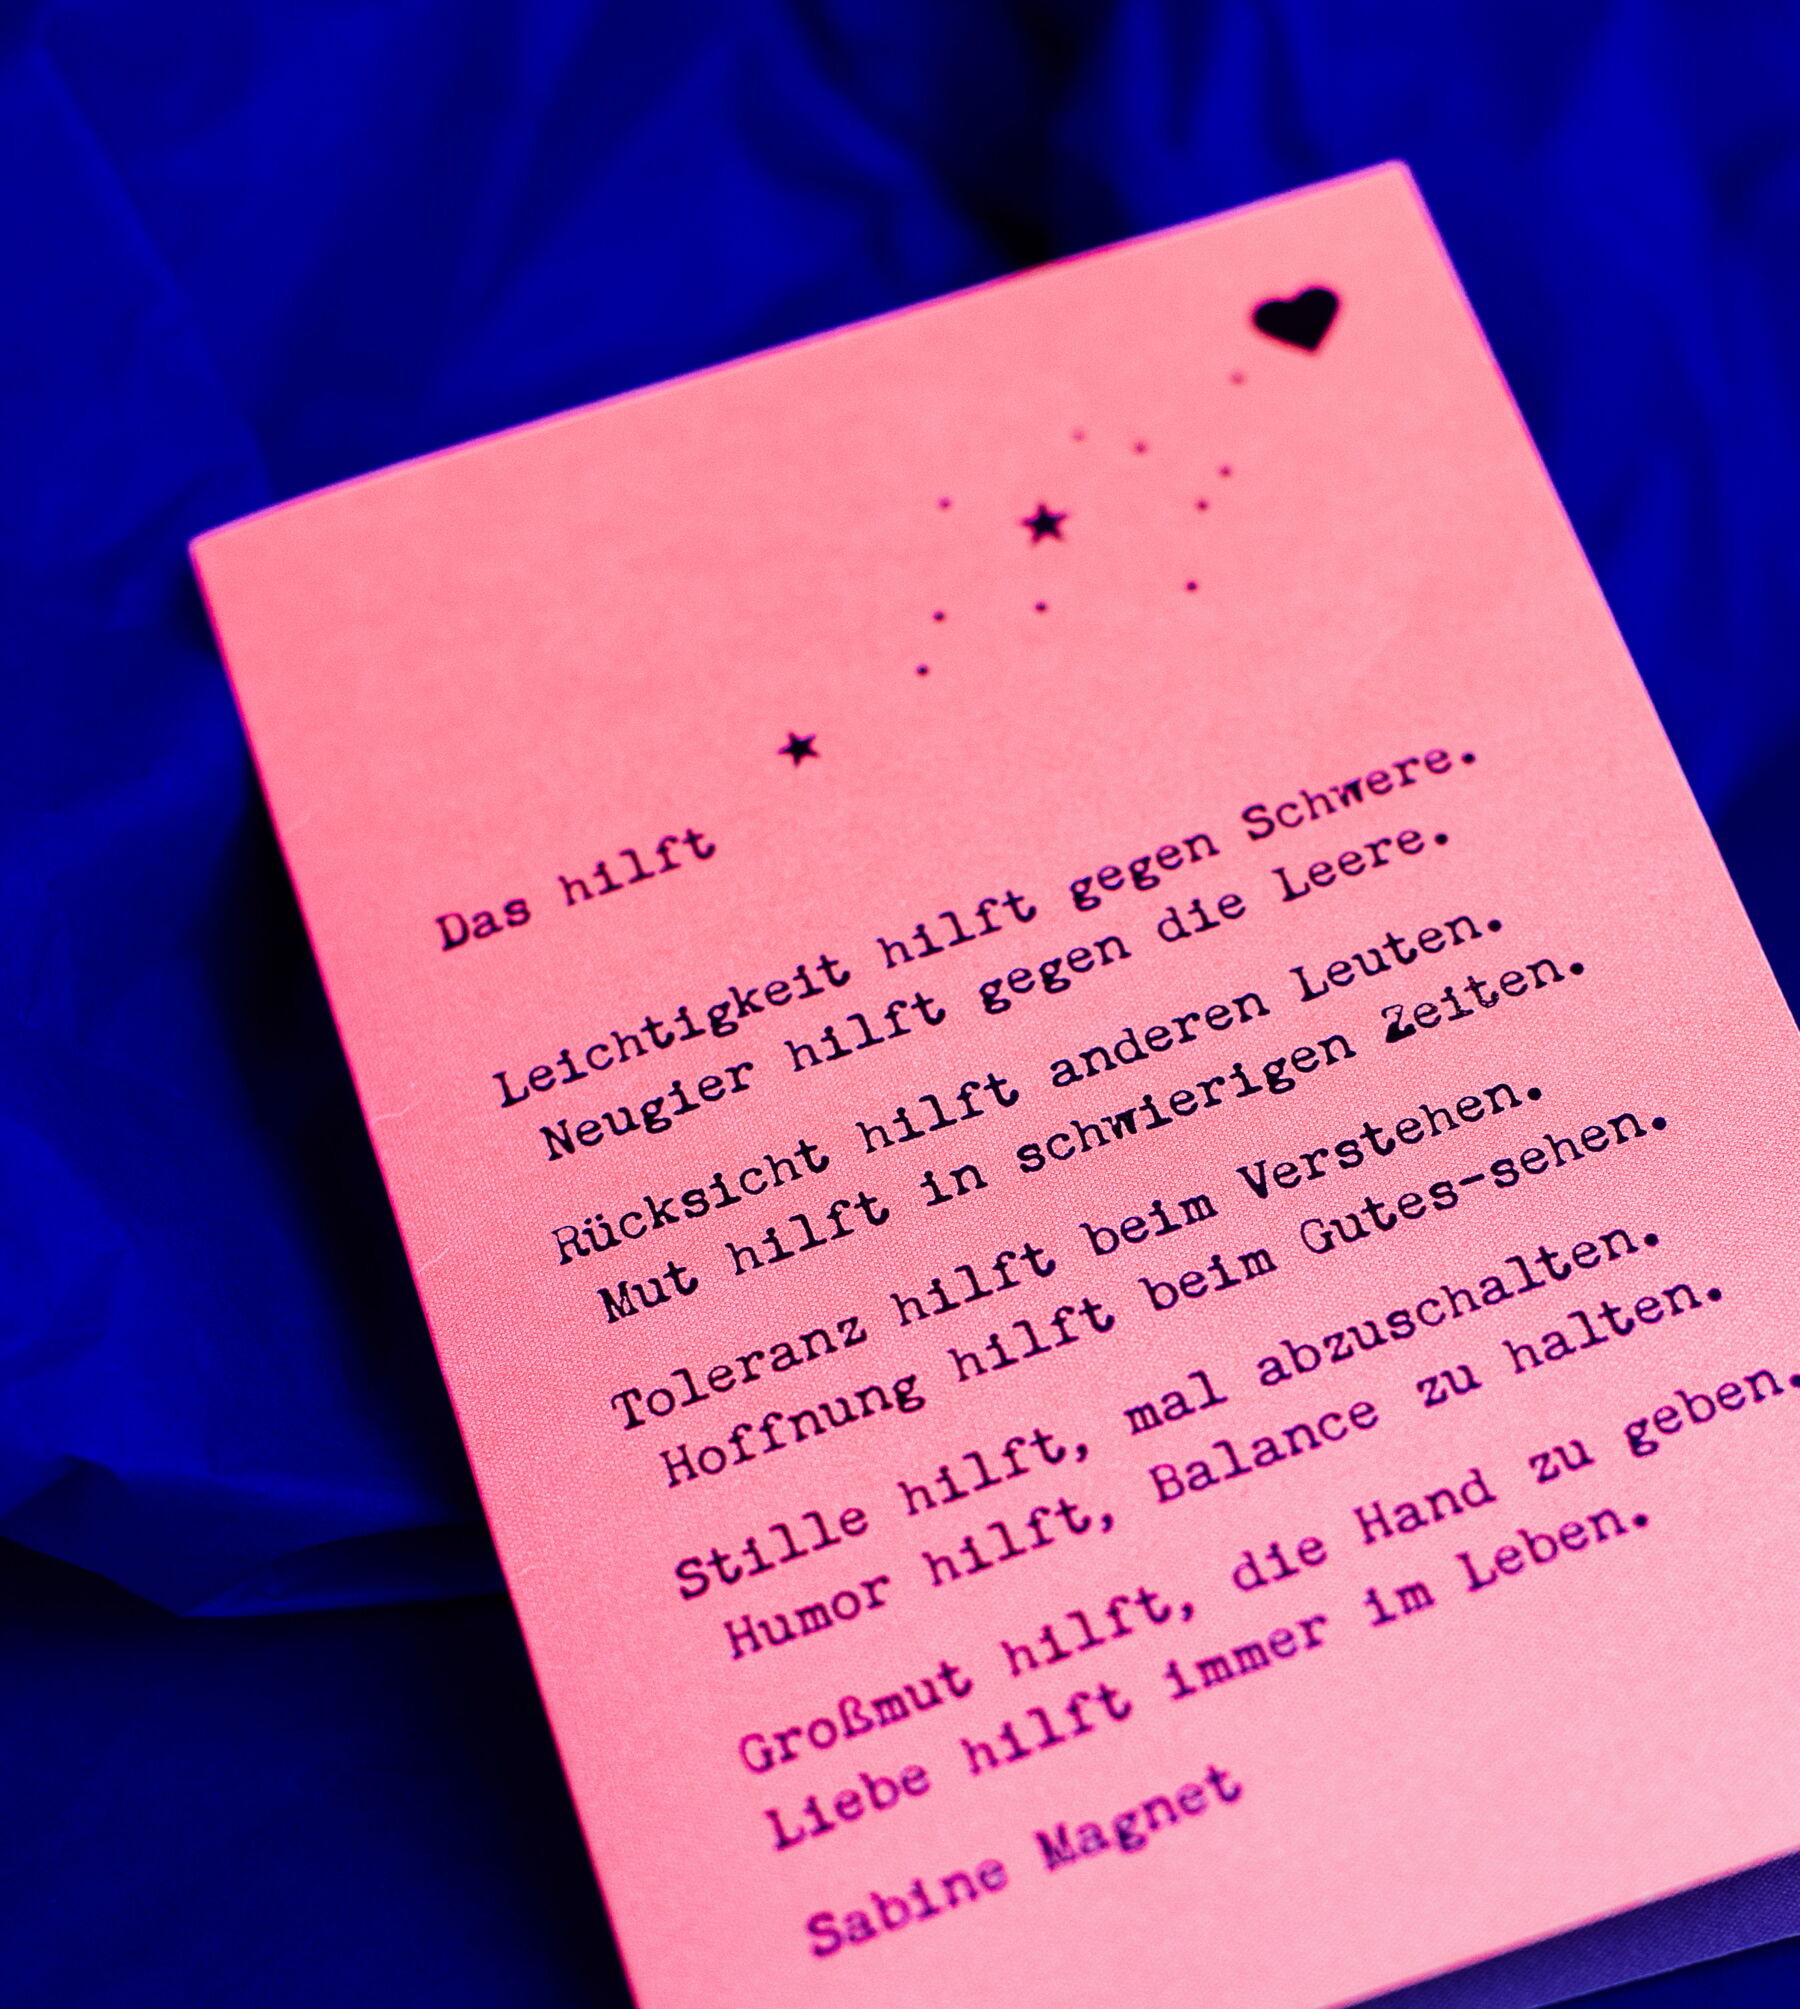 Das hilft
Leichtigkeit hilft gegen Schwere.
Neugier hilft gegen die Leere.
Rücksicht hilft anderen Leuten.
Mut hilft in schwierigen Zeiten.
Toleranz hilft beim Verstehen.
Hoffnung hilft beim Gutes-sehen.
Stille hilft, mal abzuschalten.
Humor hilft, Balance zu halten.
Großmut hilft, die Hand zu geben.
Liebe hilft immer im Leben.
Sabine Magnet